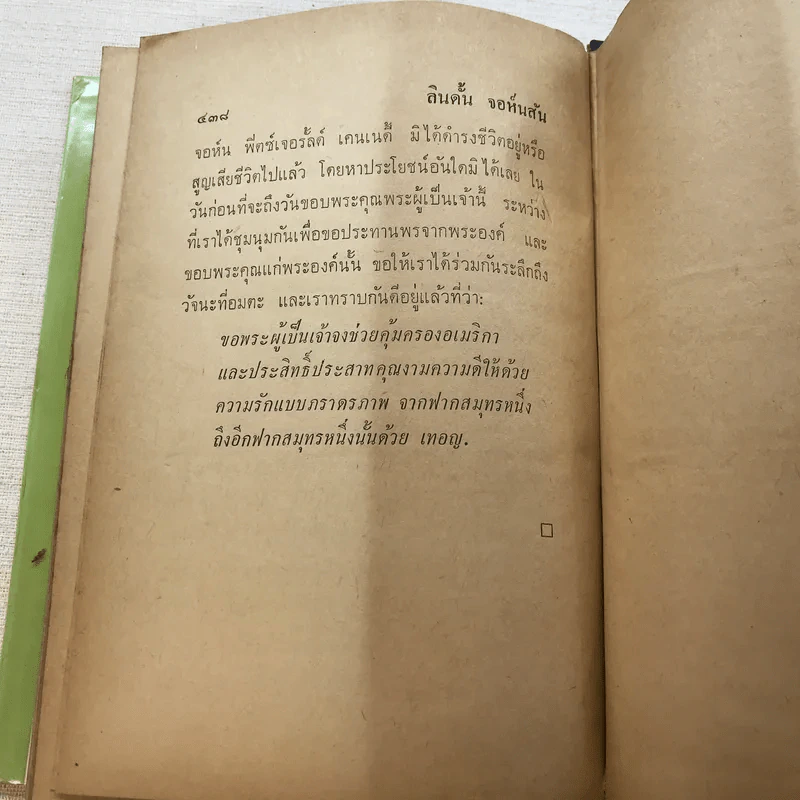 ๔๓๘
ลินดั้น จอห์นสัน
จอห์น ฟิตซ์เจอรัลด์ เคนเนดี้ มิได้ดำรงชีวิตอยู่หรือ
สูญเสียชีวิตไปแล้ว โดยหาประโยชน์อันใดมิได้เลย ใน
วันก่อนที่จะถึงวันขอบพระคุณพระผู้เป็นเจ้านี้ ระหว่าง
ที่เราได้ชุมนุมกันเพื่อขอประทานพรจากพระองค์ และ
ขอบพระคุณแก่พระองค์นั้น ขอให้เราได้ร่วมกันระลึกถึง
วัจนะที่อมตะ และเราทราบกันดีอยู่แล้วที่ว่า:
ขอพระผู้เป็นเจ้าจงช่วยคุ้มครองอเมริกา
และประสิทธิ์ประสาทคุณงามความดีให้ด้วย
ความรักแบบภราดรภาพ จากฟากสมุทรหนึ่ง
ถึงอีกฟากสมุทรหนึ่งนั้นด้วย เทอญ.